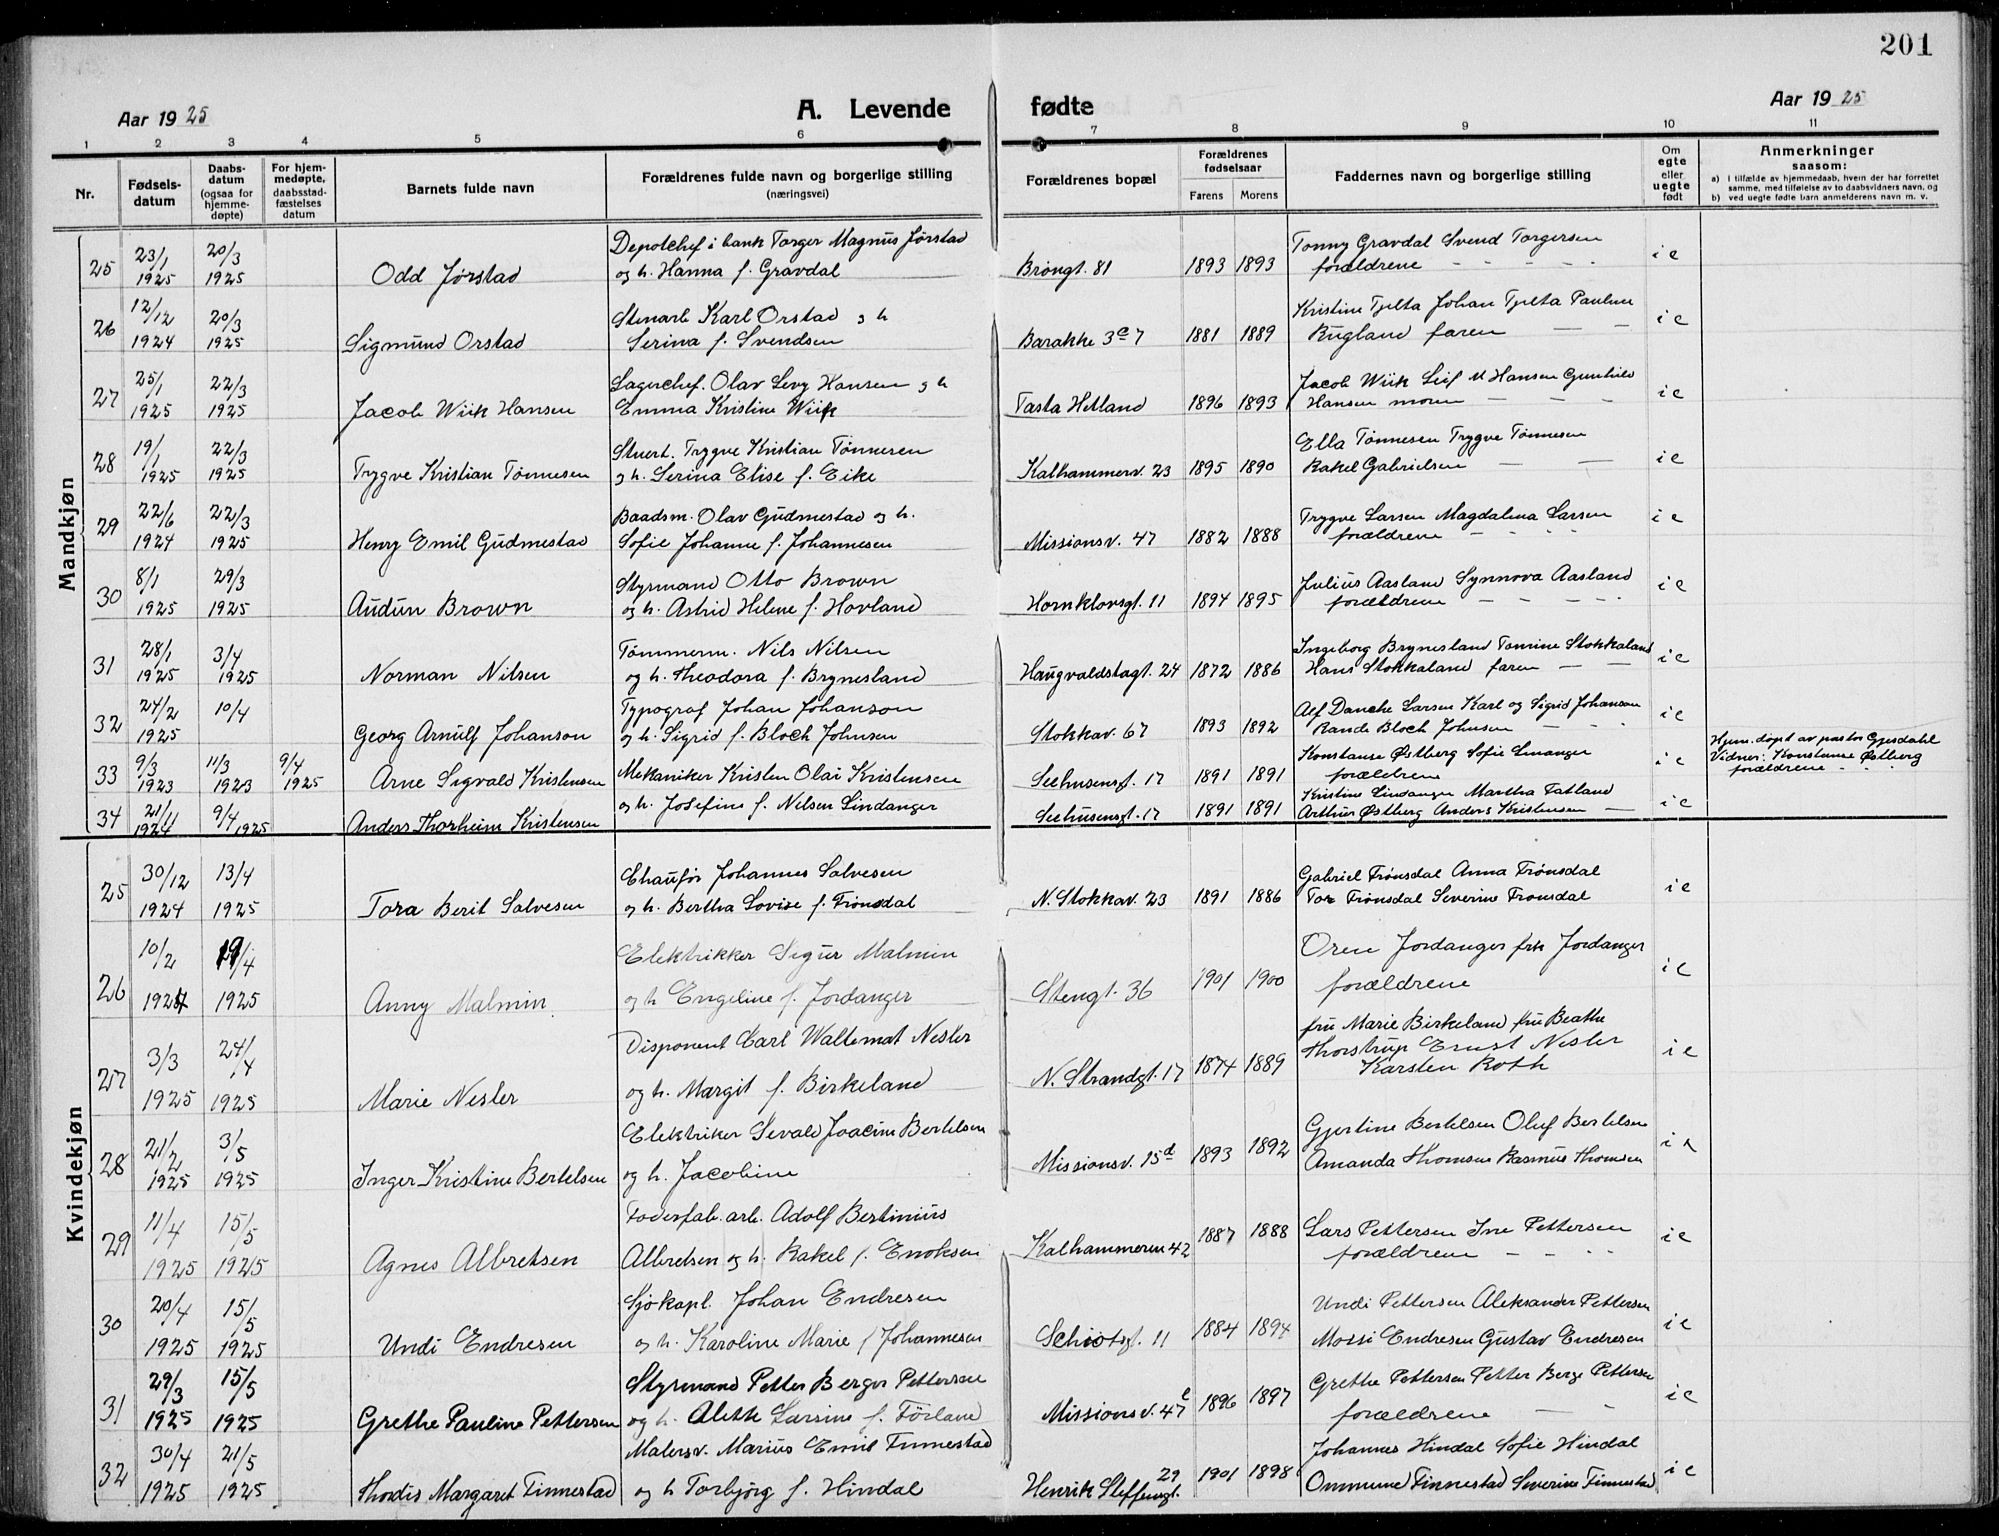 201
Aar 1925 A. Levende fødte Aar 1925
1 2 3 4 5 6 7 8 9 10 11
Nr. Fødsels-datum Daabs-datum (ogsaa for hjemme-døpte) For hjem-medøpte, daabsstad-fæstelses datum Barnets fulde navn Forældrenes fulde navn og borgerlige stilling (næringsvei) Forældrenes bopæl Forældrenes fødselsaar Farens Morens Faddernes navn og borgerlige stilling Om egte eller uegte født Anmerkninger saasom:
a) I tilfælde av hjemmedaab, hvem der har forrettet samme, med tilføielse av to daabsvidners navn, og
b) ved uegte fødte barn anmelderens navn m. v.
Mandkjøn
25 23/1 1925 20/3 1925 Odd Jørstad Depotchef i bank Torger Magnus Jørstad
og h. Hanna f. Gravdal Brøngt. 81 1893 1893 Tonny Gravdal Svend Torgersen
forældrene - - - - - i e
26 12/12 1924 20/3 1925 Sigmund Orstad Stenarb Karl Orstad og h
Serina f. Svendsen Barakke 3c 7 1881 1889 Kristine Tjelta Johan Tjelta Pauline
Rugland faren — — i e
27 25/1 1925 22/3 1925 Jacob Wiik Hansen Lagerchef. Olav Levy Hansen og h
Emma Kristine Wiik Tasta Hetland 1896 1893 Jacob Wiik Leif M Hansen Gunhild
Hansen moren - - - i e
28 19/1 1925 22/3 1925 Trygve Kristian Tønnesen Stuert. Trygve Kristian Tønnesen
og h. Serina Elise f. Eike Kalhammerv. 23 1895 1890 Ella Tønnesen Trygve Tønnesen
Rakel Gabrielsen — — i e
29 22/6 1924 22/3 1925 Henry Emil Gudmestad Baadsm. Olav Gudmestad og h.
Sofie Johanne f. Johannesen Missionsv. 47 1882 1888 Trygve Larsen Magdalena Larsen
forældrene - - - - i e
30 8/1 1925 29/3 1925 Audun Brown Styrmand Otto Brown
og h. Astrid Helene f. Hovland Hornklovsgt. 11 1894 1895 Julius Aasland Synnova Aasland
forældrene - - - - i e
31 28/1 1925 3/4 1925 Norman Nilsen Tømmerm. Nils Nilsen
og h. Theodora f. Brynesland Haugvaldstagt. 24 1872 1886 Ingeborg Brynesland Tomine Stokkaland
Hans Stokkaland faren — — i e
32 24/2 1925 10/4 Georg Arnulf Johanson Typograf Johan Johanson
og h. Sigrid f. Bloch Johnsen Stokkav. 67 1893 1892 Alf Danche Larsen Karl og Sigrid Johanson
Rande Bloch Johnsen — - - i e
33 9/3 1923 11/3 1923 9/4 1925 Arne Sigvald Kristensen Mekaniker Kristen Olai Kristensen Seehusensgt. 17 1891 1891 Konstanse Østberg Sofie
forældrene i e Hjem. døpt av pastor Gjesdahl
Vidner: Konstanse Østberg
forældrene - -
34 21/11 1924 9/4 1925 Anders Thorheim Kristensen og h. Josefine f. Nilsen Lindanger Seehusensgt. 17 1891 1891 Kristine Lindanger Martha Tatland
Arthur Østberg Anders Kristensen — i e
Kvindekjøn
25 30/12 1924 13/4 1925 Tora Berit Salvesen Chaufør Johannes Salvesen
og h. Bertha Lovise f. Trønsdal N. Stokkav. 23 1891 1886 Gabriel Trønsdal Anna Trønsdal
Tor Trønsdal Severine Trønsdal i e
26 10/2 1924 19/4 1925 Anny Malmin Elektrikker Sigur Malmin
og h Engeline f. Jordanger Stengt. 36 1901 1900 Oren Jordanger frk Jordanger
forældrene i e
27 3/3 1925 24/4 1925 Marie Nesler Disponent Carl Waltemat Nesler
og h. Margit f. Birkeland N. Strandgt. 17 1874 1889 fru Marie Birkeland fru Beathe
Thorstrup Ernst Nesler
Karsten Roth i e
28 21/2 1925 3/5 1925 Inger Kristine Bertelsen Elektriker Sevald Joacim Bertelsen
og h. Jacobine Missionsv. 15d 1893 1892 Gjertine Bertelsen Oluf Bertelsen
Amanda Thomsen Rasmus Thomsen i e
29 11/4 1925 15/5 1925 Agnes Albretsen Foderfab. arb. Adolf Bertinius
Albretsen og h. Rakel f. Enoksen Kalhammeren 42 1887 1888 Lars Pettersen Ine Pettersen
forældrene - - - - i e
30 20/4 1925 15/5 1925 Undi Endresen Sjøkapt. Johan Endresen
og h. Karoline Marie f Johannesen Schiøtsgt. 11 1884 1894 Undi Pettersen Aleksander Pettersen
Mossi Endresen Gustav Endresen i e
31 29/3 1925 15/5 1925 Grethe Pauline Pettersen Styrmand Petter Berger Pettersen
og h. Alette Larsine f. Førland Missionsv. 47 c 1896 1897 Grethe Pettersen Petter Berge Pettersen
forældrene — - i e
32 30/4 1925 21/5 1925 Thordis Margaret Finnestad Malersv. Marius Emil Finnestad
og h Torbjørg f. Hindal Henrik Steffensgt. 29 1901 1898 Johannes Hindal Sofie Hindal
Ommund Finnestad Severine Finnestad i e